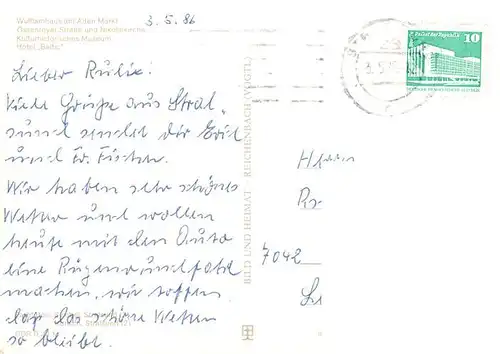 Wulflamhaus am Alten Markt
Ossenreyer Straße und Nikolaikirche
Kulturhistorisches Museum
Hotel „Baltic"
3. 5. 86
P. Palast der Republik
10
Lieber
Viele Grüße aus Stral-
sund sendet dir
und Fr. Fischer.
Wir haben sehr schönes
Wetter und wollen
heute mit dem Auto
eine Rügenrundfahrt
machen, wir hoffen
daß das schöne Wetter
so bleibt.
BILD UND HEIMAT REICHENBACH (VOGTL)
Herrn
7042